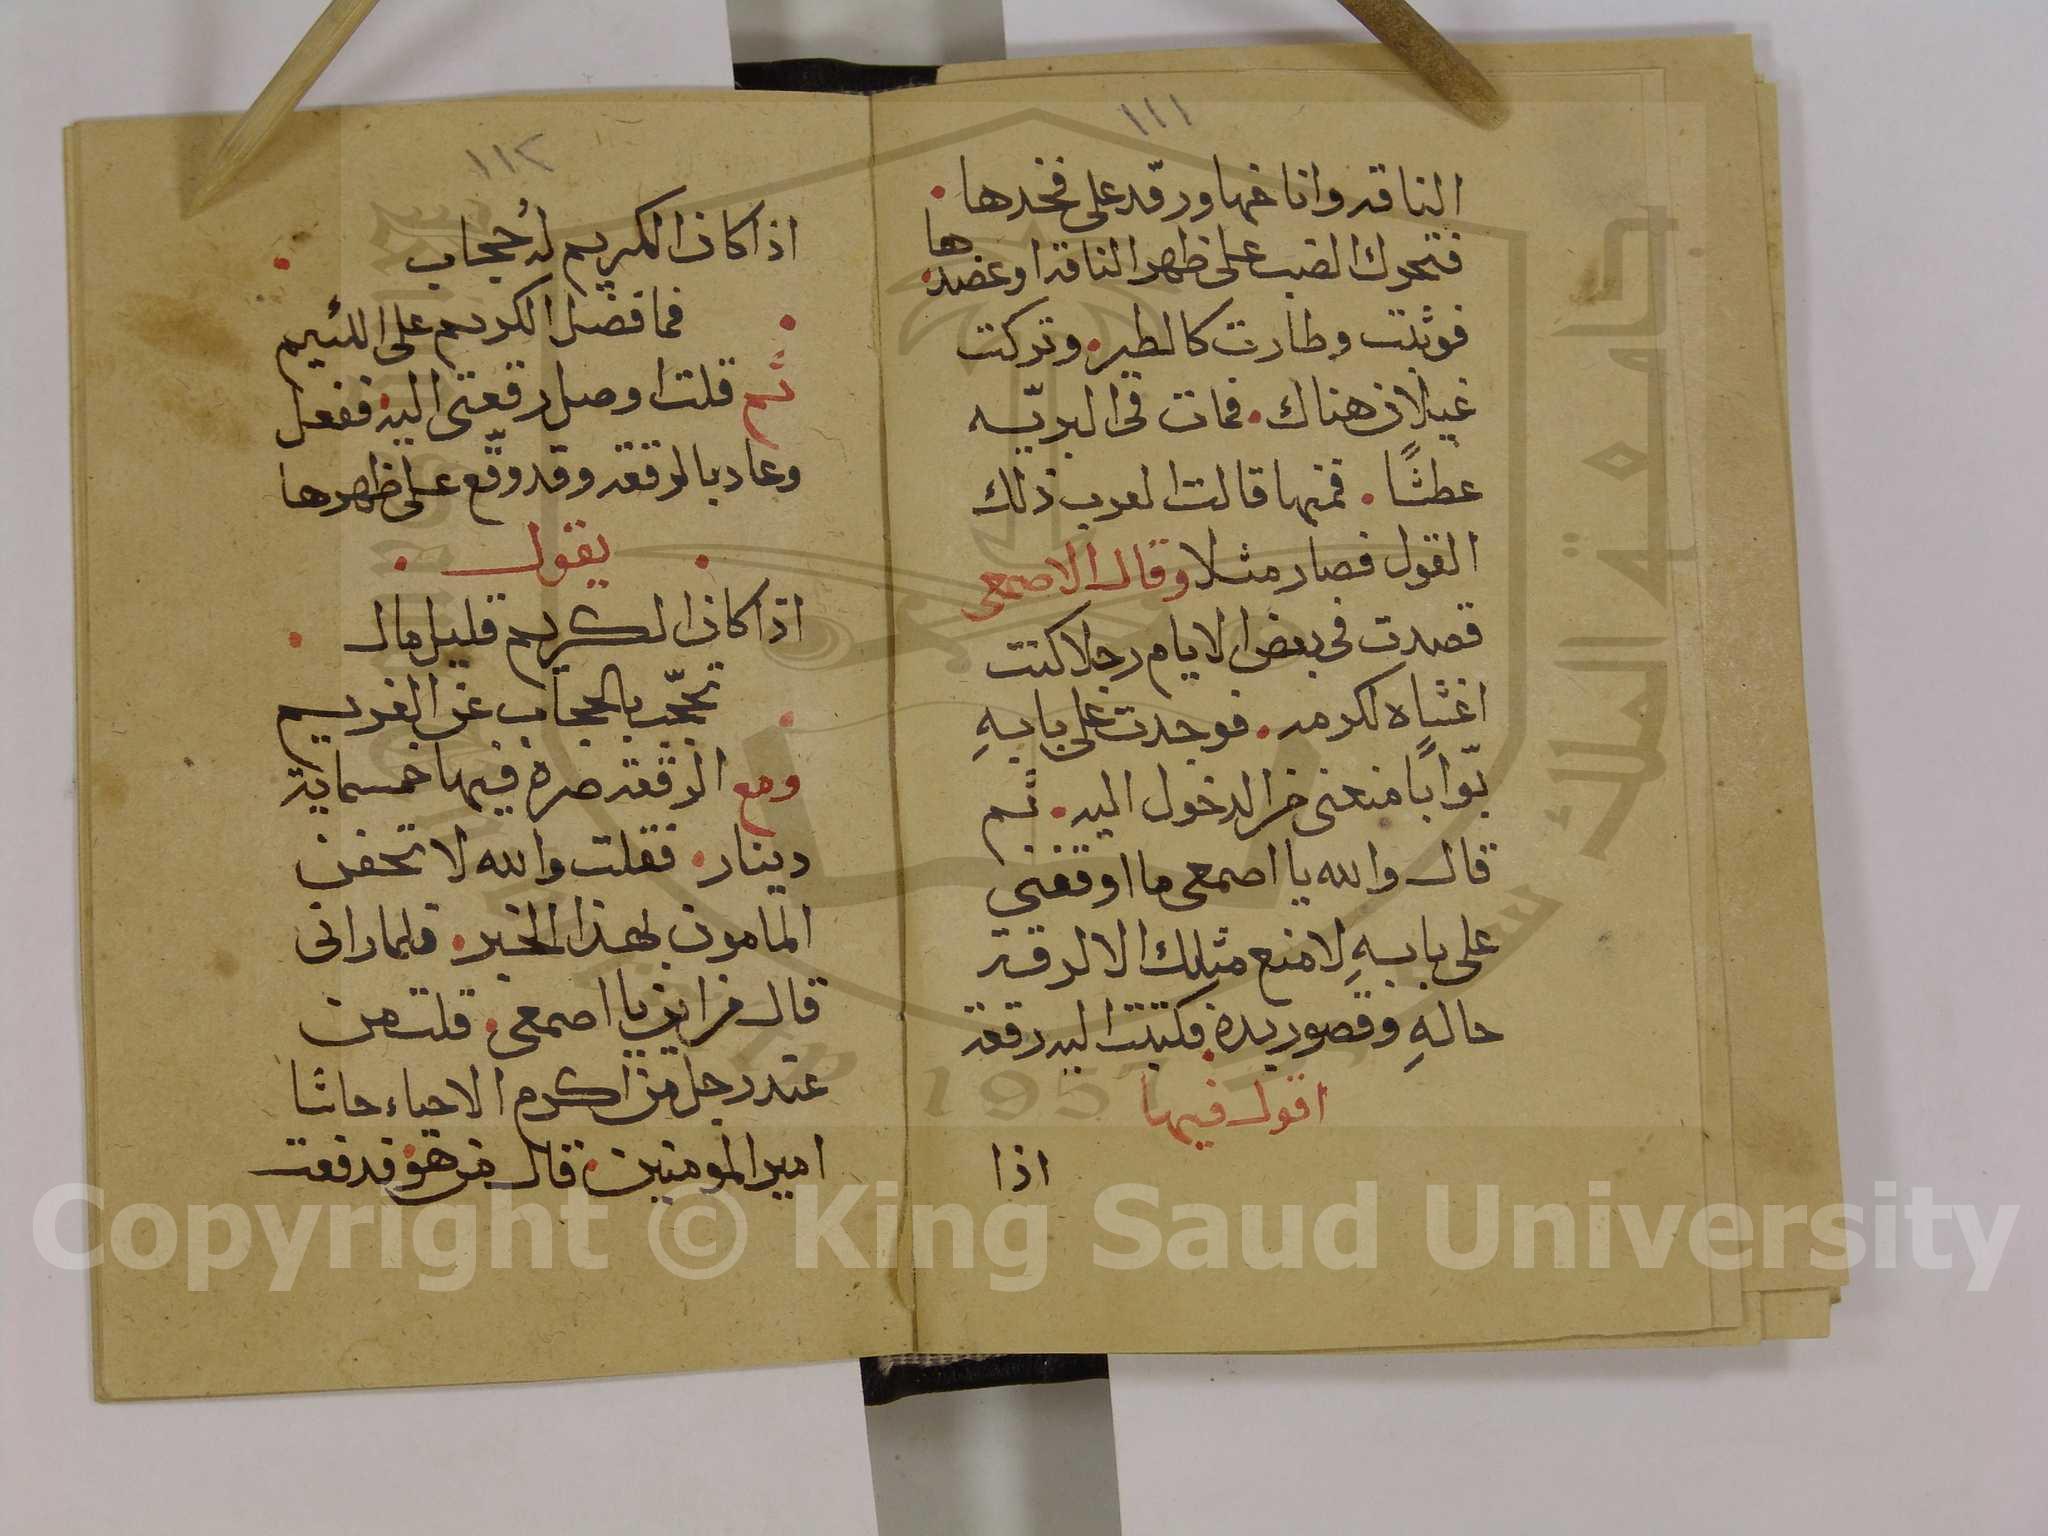 ١١١
الناقه واناخها ورقد على فخدها
فتحرك الضب على ظهر الناقه او عضدها
فوثبت وطارت كالطير وتركت
غيلان هناك فمات فى البريّه
عطشًا فمنها قالت العرب ذلك
القول فصار مثلا وقال الاصمعى
قصدت فى بعض الايام رجلا كنت
اغشاه لكرمه فوجدت على بابهِ
بوّابًا فمنعنى من الدخول اليه ثم
قال والله يا اصمعى ما اوقفنى
على بابهِ لامنع مثلك الا لرقة
حالهِ وقصور يده فكتبت اليه رقعة
اقول فيها
اذا
١١٢
اذا كان الكريم له حجاب
فما فضل الكريم على اللئيم
ثم قلت اوصل رقعتى اليه ففعل
وعاد بالرقعه وقد وقّع على ظهرها
يقول
اذا كان الكريم قليل مال
تحجّب بالحجاب عن الغريم
ومع الرقعة صرة فيها خمسماية
دينار فقلت والله لاتحفن
المامون بهذا الخبر فلما رانى
قال من اين يا اصمعى قلت من
عند رجل من اكرم الاحياء حاشا
امير المومنين قال من هو فدفعت
جامعة الملك سعود
1957
Copyright © King Saud University